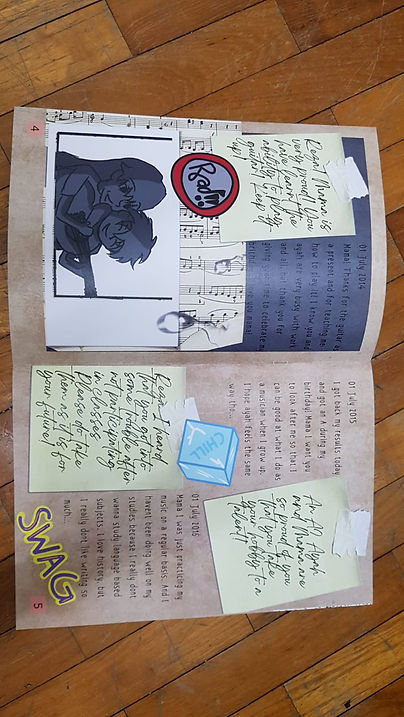 Rega! Mama is
very proud of you
have learnt the
ability to play
guitar! Keep it
up!
Rad!!
01 July 2014
Mama Thanks for the guitar as
a present and for teaching me
how to play it! I know you and
ayah are very busy with work
and all but thank you for
giving your time to celebrate my
birthday. I love you Mama!
4
01 July 2015
I got back my results today
and got an A during my
birthday, Mama I want you
to look after me so that I
can be good at what I do as
a musician when I grow up.
I hope ayah feels the same
way too...
An A?! Ayah
and Mama are
so proud of you
that you take
your hobby to a
talent!
CHILL
Rega, I heard
that you got into
some trouble after
not participating
in classes.
Please do take
them as it is for
your future!
01 July 2015
Mama I was just practicing my
music on a regular basis. And I
havent been doing well on my
studies because I really dont
wanna study language based
subjects. I love history, but
I really dont like writing so
much...
SWAG
5